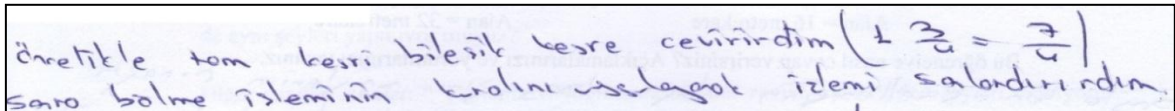 öncelikle tam kesri bileşik kesre çevirirdim (1 3/4 = 7/4)
sonra bölme işleminin kuralını uygulayarak işlemi sonlandırırdım.